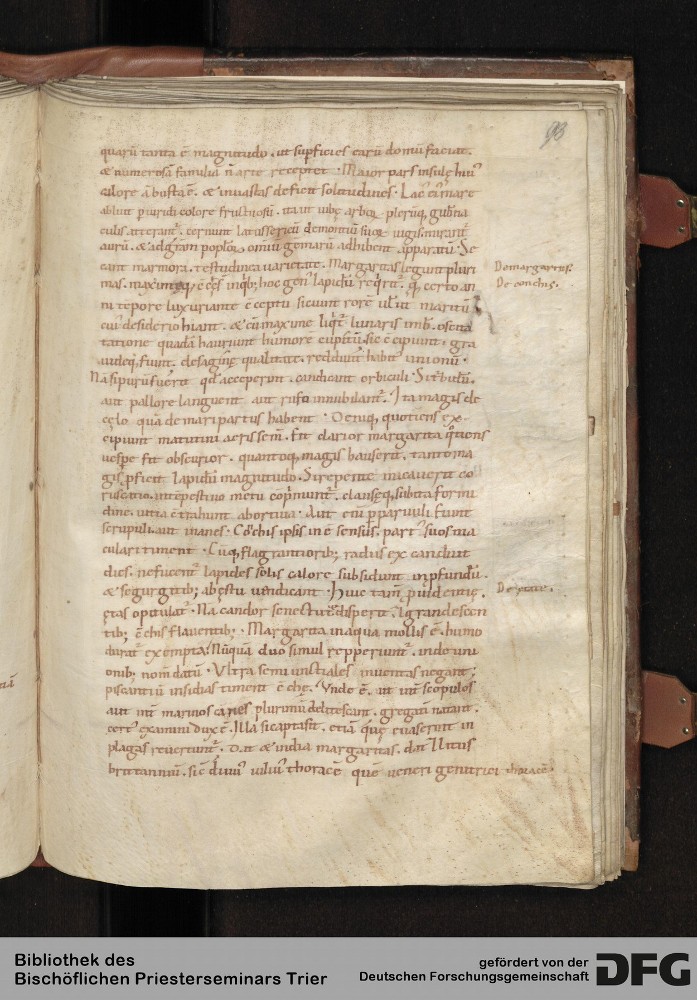 93
quarū tanta ē magnitudo . ut supficies earū domū faciat .
& numerosā familia n̄ arte receptet . Maior pars insulę hui'
calore ābusta ē . & inuastas deficit solitudines . Lat' ei' mare
abluit puridi colore fruticosū . ita ut
teratur . cernunt
aurū . & ad omiū gemarū adhibent apparatū . Se
cant marmora . testudinea uarietate . Margaritas legunt pluri
De margaritis .
mas . maximasq; hoc gen' lapidū certo an
De conchis .
ni tēpore luxuriante cceptu sitiunt rorē maritū
cui' desiderio hiant . & cū maxime lunaris
tatione quadā hauriunt humorē cupitū . sic cipiunt . gra
uideq; fiunt . qualitate . reddunt habit' unionū .
Nā si purū fuerit qd' acceperunt . candicant orbiculi .
aut pallore languent aut rufo innubilant' . Ita magis de
cęlo quā de mari partus habent . Deniq; quotiens ex
cipiunt matutini aeris semē . fit clarior margarita qtiens
uespe fit obscurior . quantoq; magis hauserit . tanto ma
gis pficit lapidū magnitudo . Si repente micauerit co
ruscatio . intēpestino metu coprimunt' . clausęq; subita formi
dine . uitia trahunt abortiua . Aut eni pparuuli fiunt
scrupuli . aut inanes . Cōchis ipsis inē sensus . part' suos ma
culari timent . Cūq; flagrantiorib; radiis ex canduit
dies . ne fucent' lapides solis calore subsidunt in pfundū .
& se gurgitib; ab ęstu uendicant . Huic tam puidentię .
De ętate .
ętas opitulat' . Nā candor senectute disperit . & grandescen
tib; cchis flauentib; . Margarita in aqua mollis ē . humo
durat' exempta . Nūquā duo simul repperiunt' . inde uni
onib; nom̄ datū . Ultra semiunciales inuentas negant ;
piscantiū insidias timent cche . Vnde ē . ut int' scopulos
aut int' marinos canes plurimū delitescant . gregatī natant .
cert' examini dux ē . Illa si capta sit . etiā quę euaserint in
plagas reuertunt' . Dat & india margaritas . dat & litus
brittannicū . sic diuus iulius thoracē quē ueneri genitrici thoracē .
Bibliothek des
Bischöflichen Priesterseminars Trier
gefördert von der
Deutschen Forschungsgemeinschaft
DFG